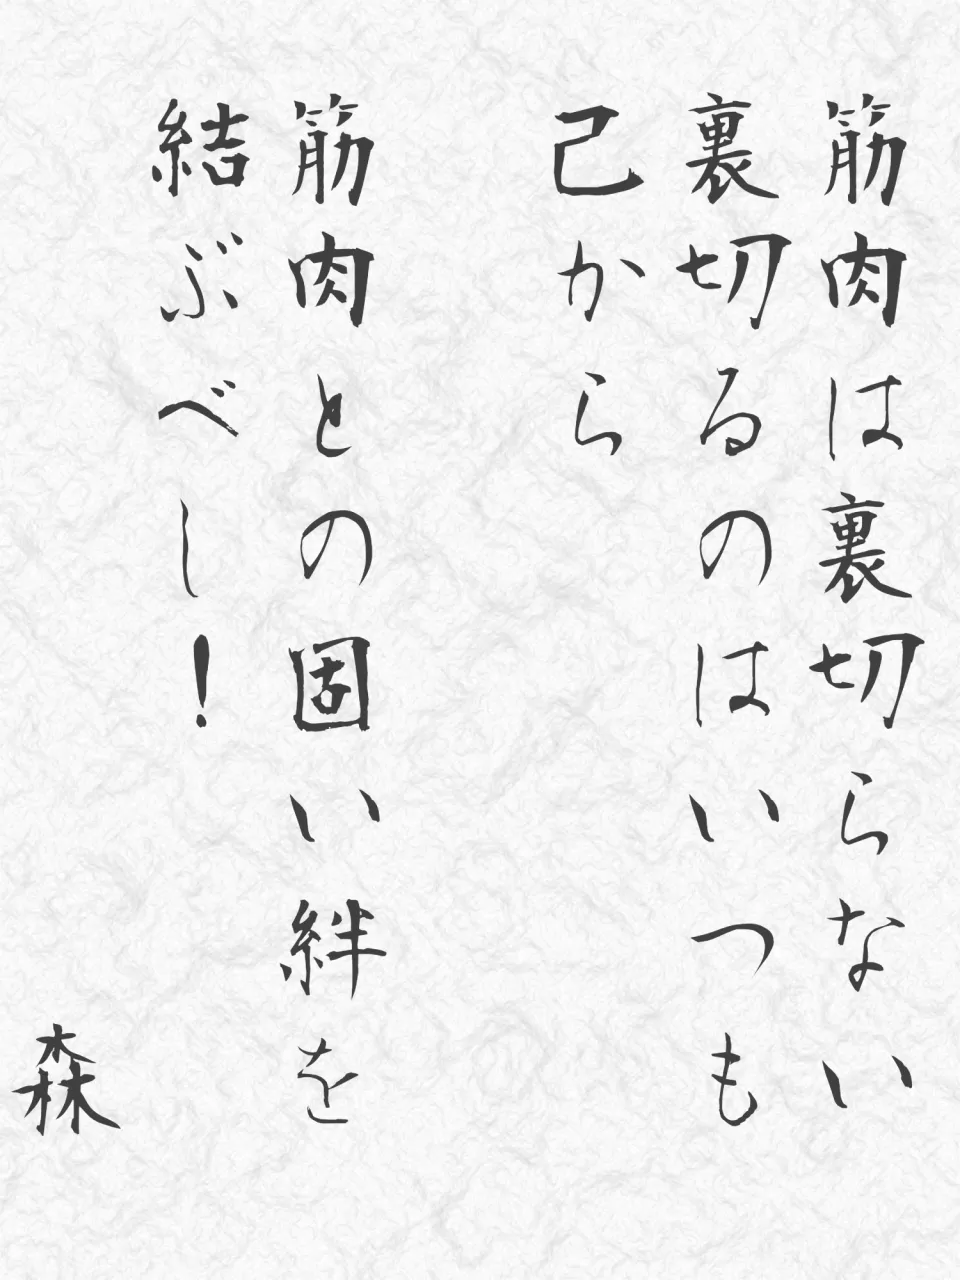 筋肉は裏切らない
裏切るのはいつも
己から
筋肉との固い絆を
結ぶべし！
森